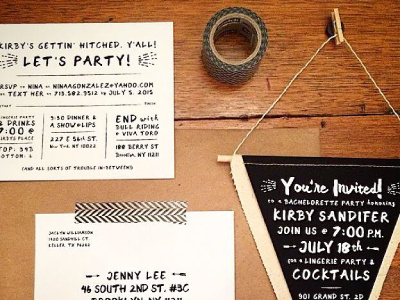 KIRBY'S GETTIN' HITCHED, Y'ALL!
LET'S PARTY!
RSVP to NINA at NINAAGONZALEZ@YAHOO.COM
or TEXT HER at 713.582.9512 by JULY 5, 2015
LINGERIE PARTY
& DRINKS
7:00 @
9:30 DINNER &
A SHOW @ LIPS
227 E 56th ST.
New York, NY 10022
END with
BULL RIDING
@ VIVA TORO
188 BERRY ST
Brooklyn, NY 11211
(AND ALL SORTS OF TROUBLE IN-BETWEEN)
JACLYN WILLIAMSON
JENNY LEE
46 SOUTH 2ND ST. #3C
BROOKLYN, NY 11211
You're Invited!
to a BACHELORETTE PARTY honoring
KIRBY SANDIFER
JOIN US @ 7:00 P.M.
JULY 18th
for a LINGERIE PARTY &
COCKTAILS
901 GRAND ST. 2D